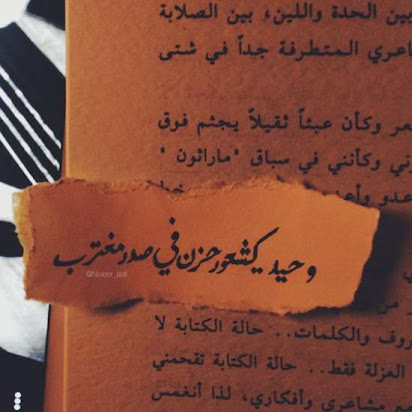 بين الحدة واللين، بين الصلابة
عري المتطرفة جداً في شتى
عر وكأن عبئاً ثقيلاً يجثم فوق
ني وكأنني في سباق "ماراثون"
وحيد كشعور حزن في صدر مغترب
روف والكلمات.. حالة الكتابة لا
العزلة فقط.. حالة الكتابة تقحمني
مشاعري وأفكاري، لذا أنغمس